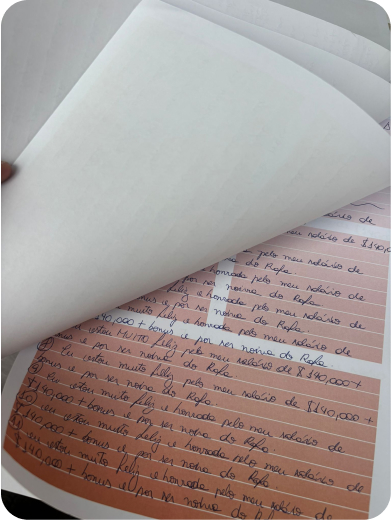 salário de
meu salário de $140,0
pelo meu salário de
do Rafa.
honrada pelo meu salário de
por ser noiva do Rafa.
feliz e honrada pelo meu salário de
bonus e por ser noiva do Rafa.
muito feliz e honrada pelo meu salário de
$140,000 + bonus e por ser noiva do Rafa.
Eu estou muito feliz pelo meu salário de $140,000 +
bonus e por ser noiva do Rafa.
Eu estou muito feliz pelo meu salário de $140,000 +
bonus e por ser noiva do Rafa.
Eu estou muito feliz e honrada pelo meu salário de
$140,000 + bonus e por ser noiva do Rafa.
eu estou muito feliz e honrada pelo meu salário de
$140,000 + bonus e por ser noiva do Rafa.
eu estou muito feliz e honrada pelo meu salário de
$140,000 + bonus e por ser noiva do